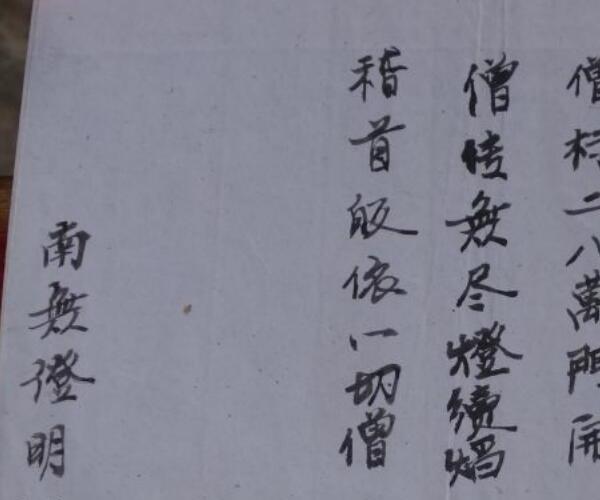 僧二八萬門開
僧傳無尽燈續焰
稽首皈依一切僧
南無證明